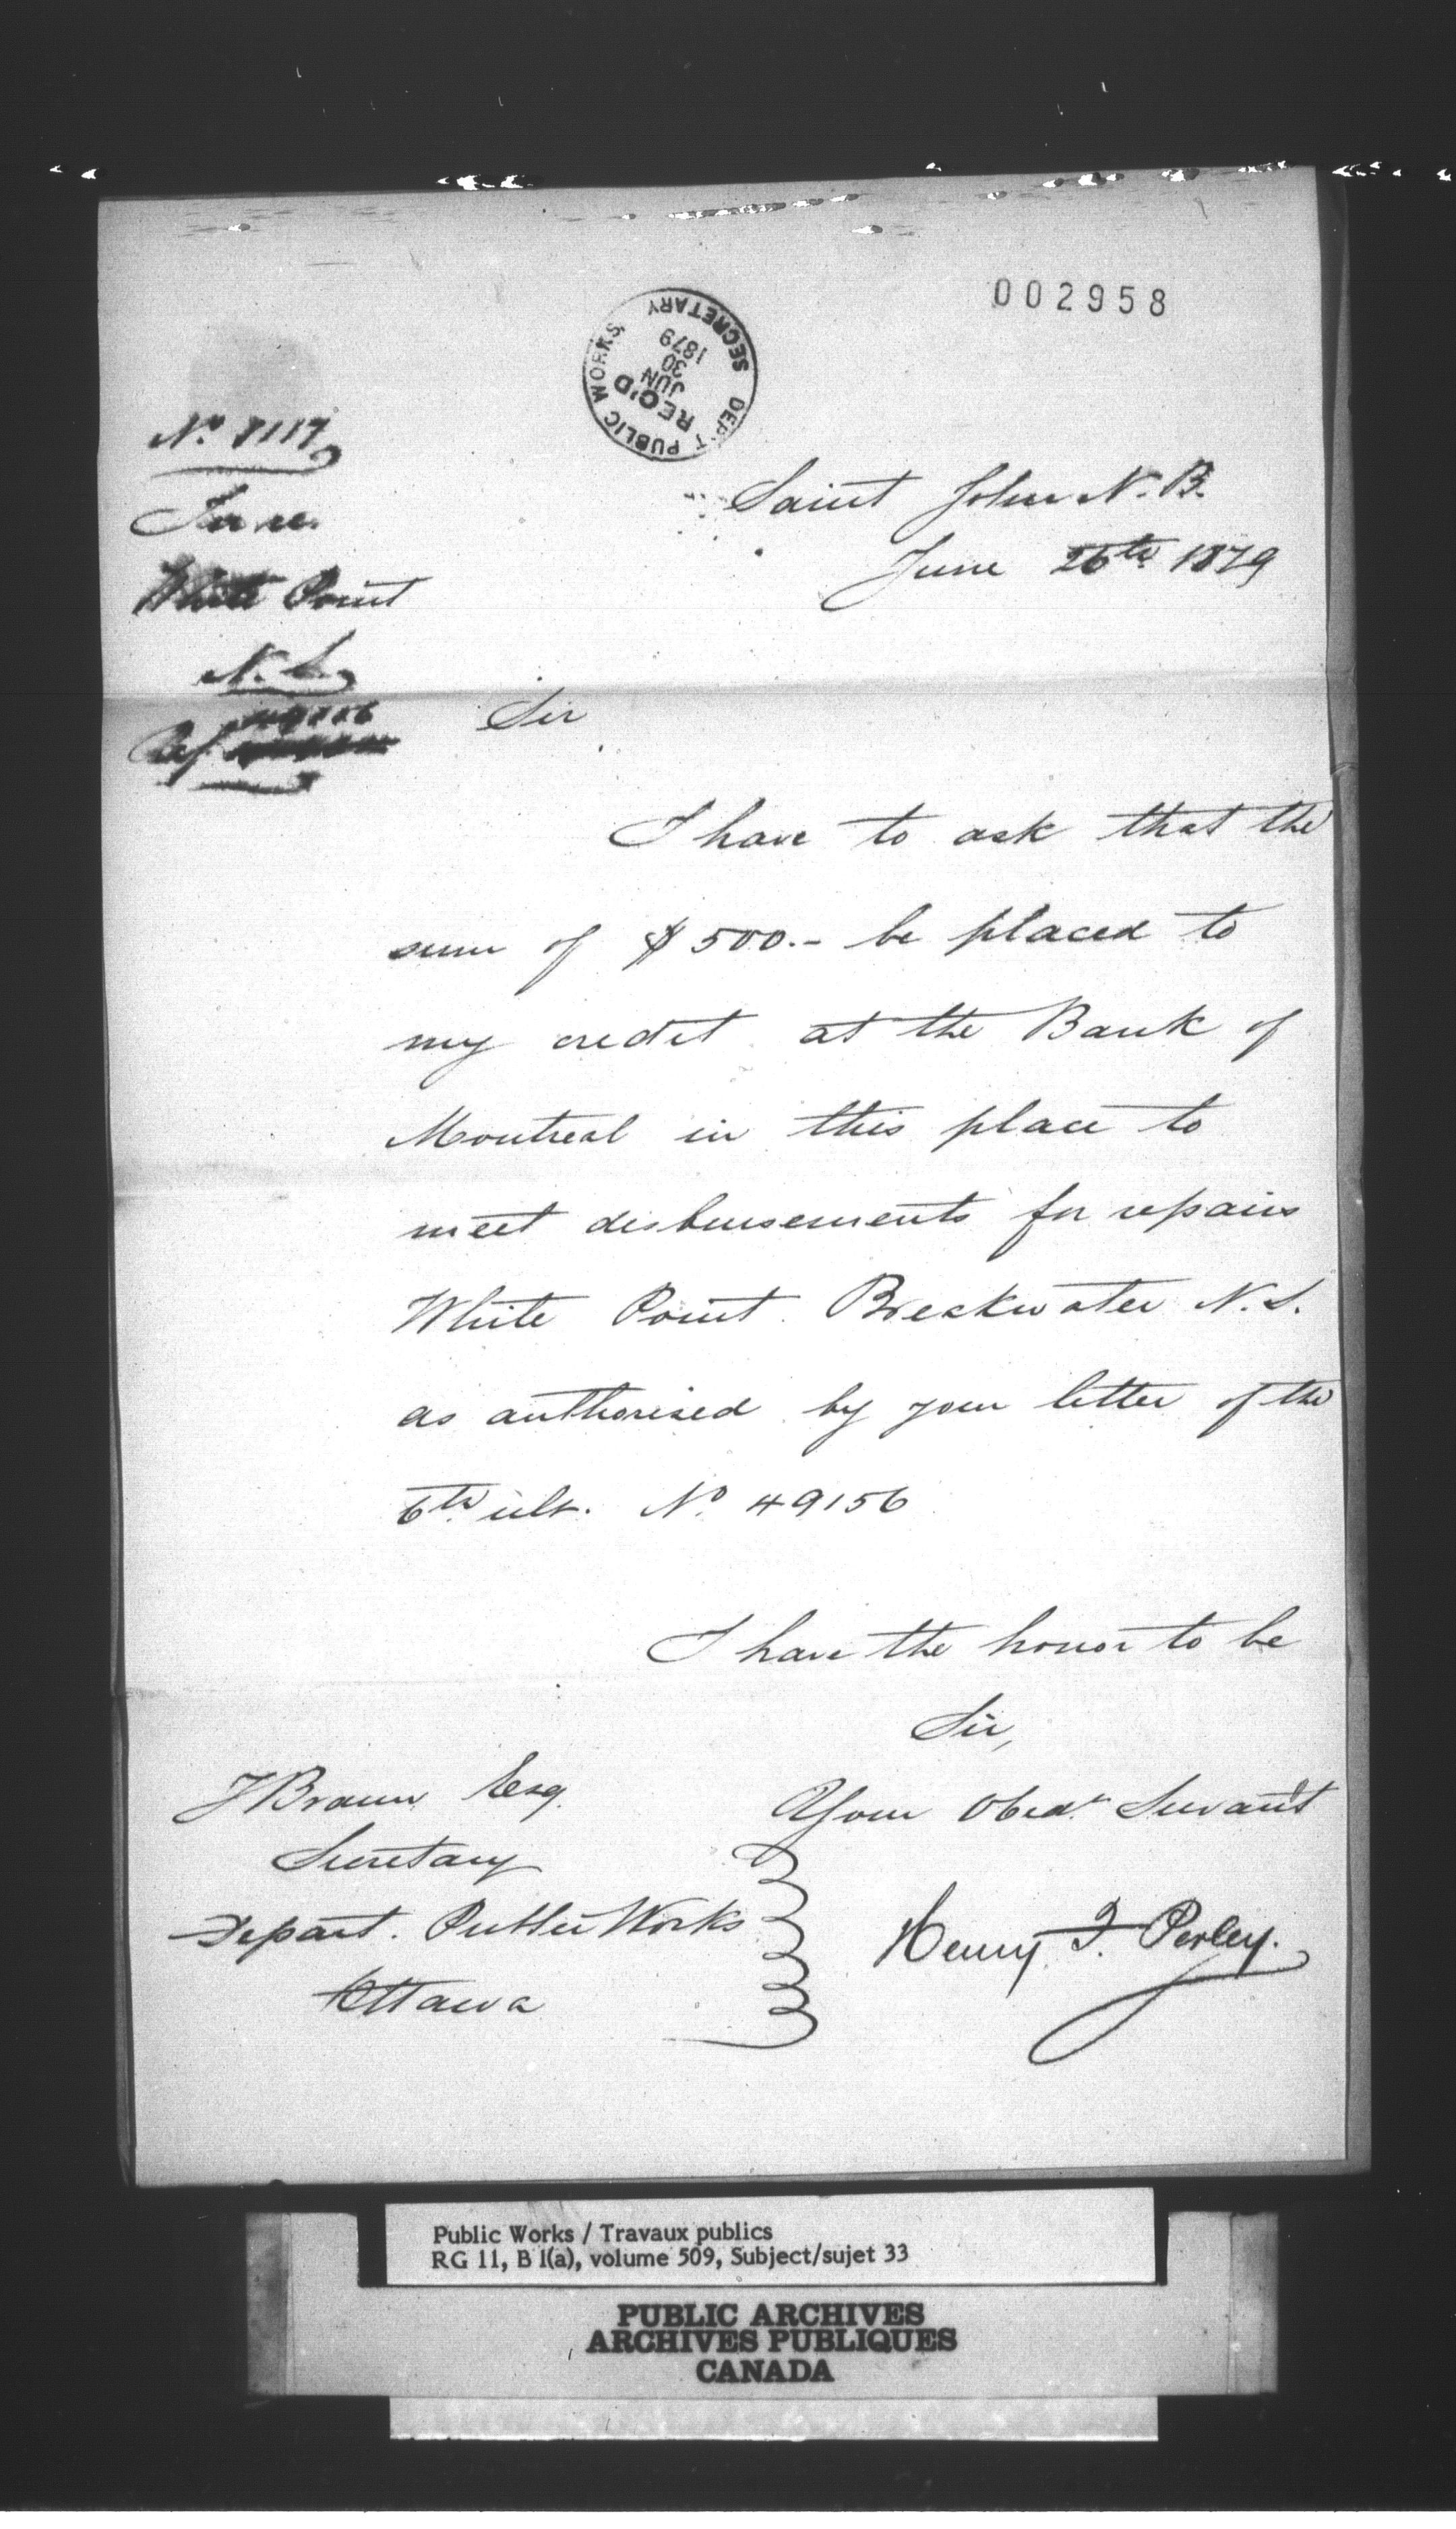 002958
DEP'T PUBLIC WORKS
REC'D
JUN
30
1879
SECRETARY
No. 8117
White Point
N.S.
49156
Ref
Saint John N.B.
June 26th 1879
Sir
I have to ask that the
sum of $500.- be placed to
my credit at the Bank of
Montreal in this place to
meet disbursements for repairs
White Point Breakwater N.S.
as authorised by your letter of the
6th ult. No 49156
I have the honor to be
Sir,
Your Obedt Servant
Henry F. Perley.
F Braun Esq.
Secretary
Depart. Public Works
Ottawa
Public Works / Travaux publics
RG 11, B 1(a), volume 509, Subject/sujet 33
PUBLIC ARCHIVES
ARCHIVES PUBLIQUES
CANADA